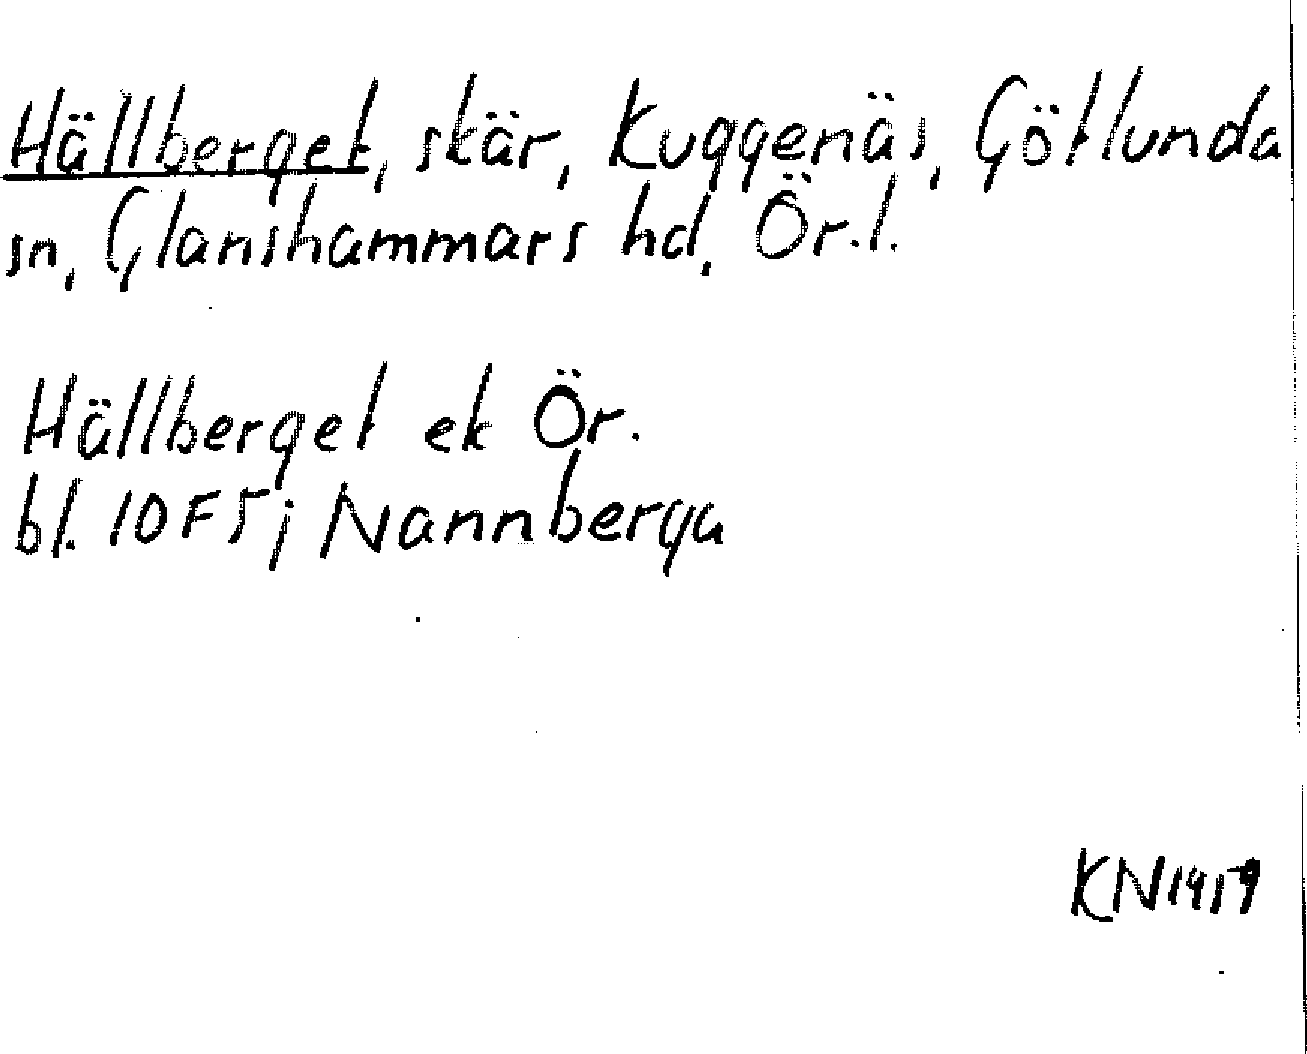 Hällberget, skär, Kuggenäs, Götlunda
sn, Glanshammars hd, Ör.l.
Hällberget ek Ör.
bl. 10F5j Nannberga
KN1919